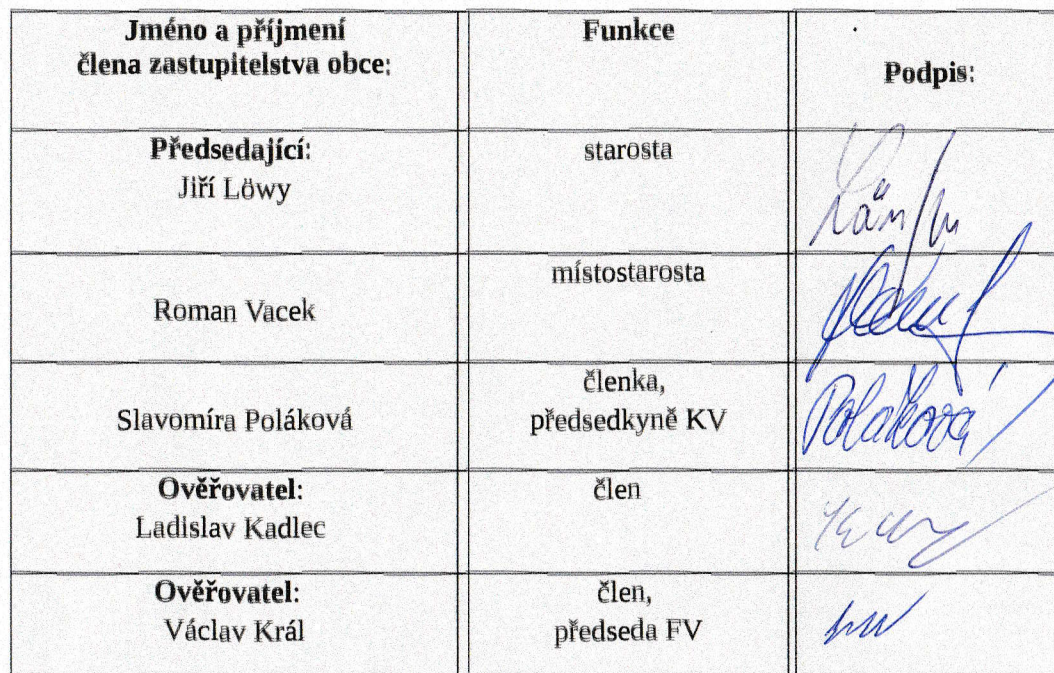 Jméno a příjmení
člena zastupitelstva obce:
Funkce
Podpis:
Předsedající:
Jiří Löwy
starosta
Roman Vacek
místostarosta
Slavomíra Poláková
členka,
předsedkyně KV
Poláková
Ověřovatel:
Ladislav Kadlec
člen
Ověřovatel:
Václav Král
člen,
předseda FV